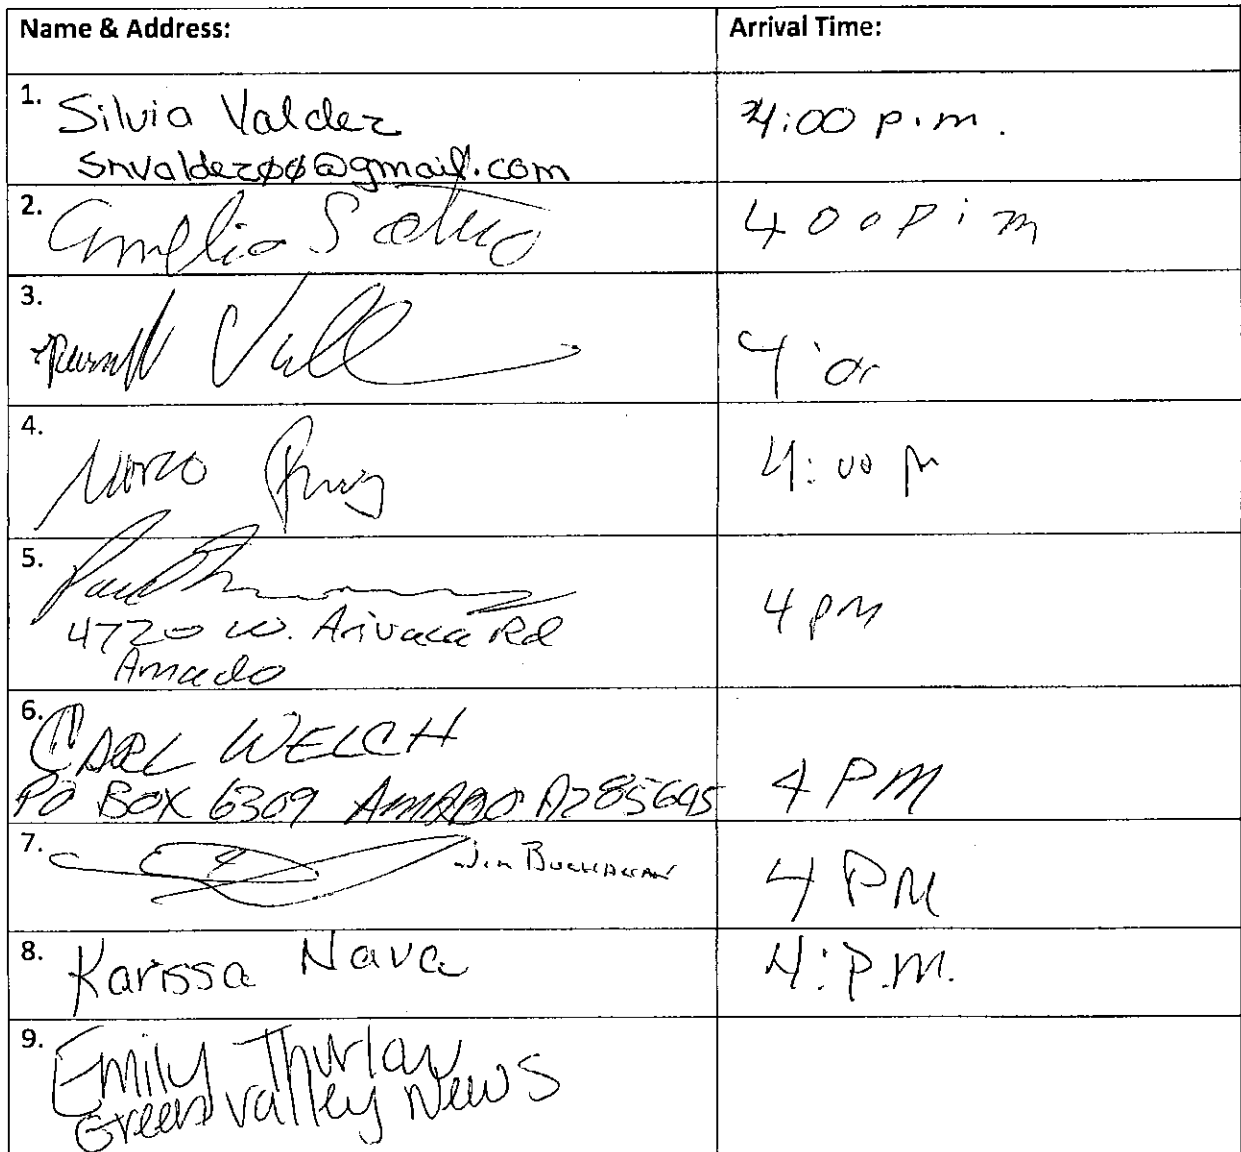 Name & Address: Arrival Time:
1. Silvia Valdez 4:00 p.m.
snvaldez00@gmail.com
2. Amelia S 4 00 P i m
3. 4:00
4. Marco Ruiz 4:00 pm
5. Paul 4 pm
4720 W. Arivaca Rd
Amado
6. CARL WELCH
PO BOX 6309 AMADO AZ 85645 4 PM
7. Jim Buchanan 4 PM
8. Karissa Nava 4: P.M.
9. Emily Thurlow
Green Valley News